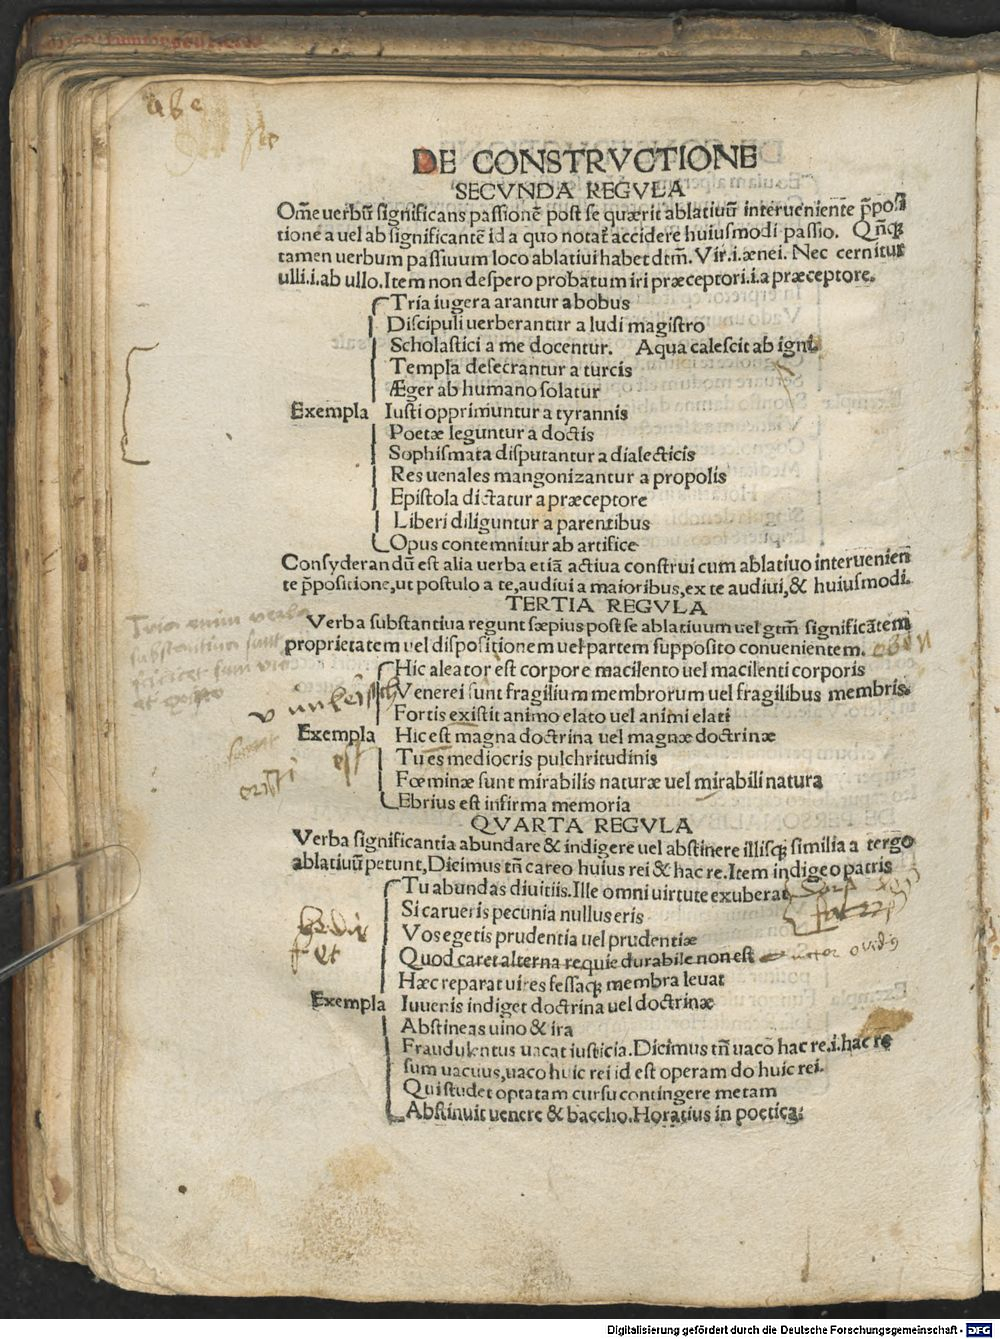 DE CONSTRVCTIONE
SECVNDA REGVLA
Om̃e uerbũ significans passionẽ post se quærit ablatiuũ interueniente p̃posi
tione a uel ab significantẽ id a quo notat̃ accidere huiusmodi passio. Qñq;
tamen uerbum passiuum loco ablatiui habet dtm̃. Vir̃.i.ænei. Nec cernitur
ulli.i.ab ullo. Item non despero probatum iri præceptori.i.a præceptore.
Tria iugera arantur a bobus
Discipuli uerberantur a ludi magistro
Scholastici a me docentur. Aqua calescit ab igni
Templa desecrantur a turcis
Æger ab humano solatur
Exempla Iusti opprimuntur a tyrannis
Poetæ leguntur a doctis
Sophismata disputantur a dialecticis
Res uenales mangonizantur a propolis
Epistola dictatur a præceptore
Liberi diliguntur a parentibus
Opus contemnitur ab artifice
Consyderandũ est alia uerba etiã actiua construi cum ablatiuo interuenien
te p̃positione, ut postulo a te, audiui a maioribus, ex te audiui, & huiusmodi.
TERTIA REGVLA
Verba substantiua regunt sæpius post se ablatiuum uel gtm̃ significãtem
proprietatem uel dispositionem uel partem supposito conuenientem.
Hic aleator est corpore macilento uel macilenti corporis
Venerei sunt fragilium membrorum uel fragilibus membris.
Fortis existit animo elato uel animi elati
Exempla Hic est magna doctrina uel magnæ doctrinæ
Tu es mediocris pulchritudinis
Fœminæ sunt mirabilis naturæ uel mirabili natura
Ebrius est infirma memoria
QVARTA REGVLA
Verba significantia abundare & indigere uel abstinere illisq; similia a tergo
ablatiuũ petunt, Dicimus tñ careo huius rei & hac re. Item indigeo patris
Tu abundas diuitiis. Ille omni uirtute exuberat
Si carueris pecunia nullus eris
Vos egetis prudentia uel prudentiæ
Quod caret alterna requie durabile non est
Hæc reparat uires fessaq; membra leuat
Exempla Iuuenis indiget doctrina uel doctrinæ
Abstineas uino & ira
Fraudulentus uacat iusticia. Dicimus tñ uaco hac re.i.hac re
sum uacuus, uaco huic rei id est operam do huic rei.
Qui studet optatam cursu contingere metam
Abstinuit uenere & baccho. Horatius in poetica:
Digitalisierung gefördert durch die Deutsche Forschungsgemeinschaft - DFG